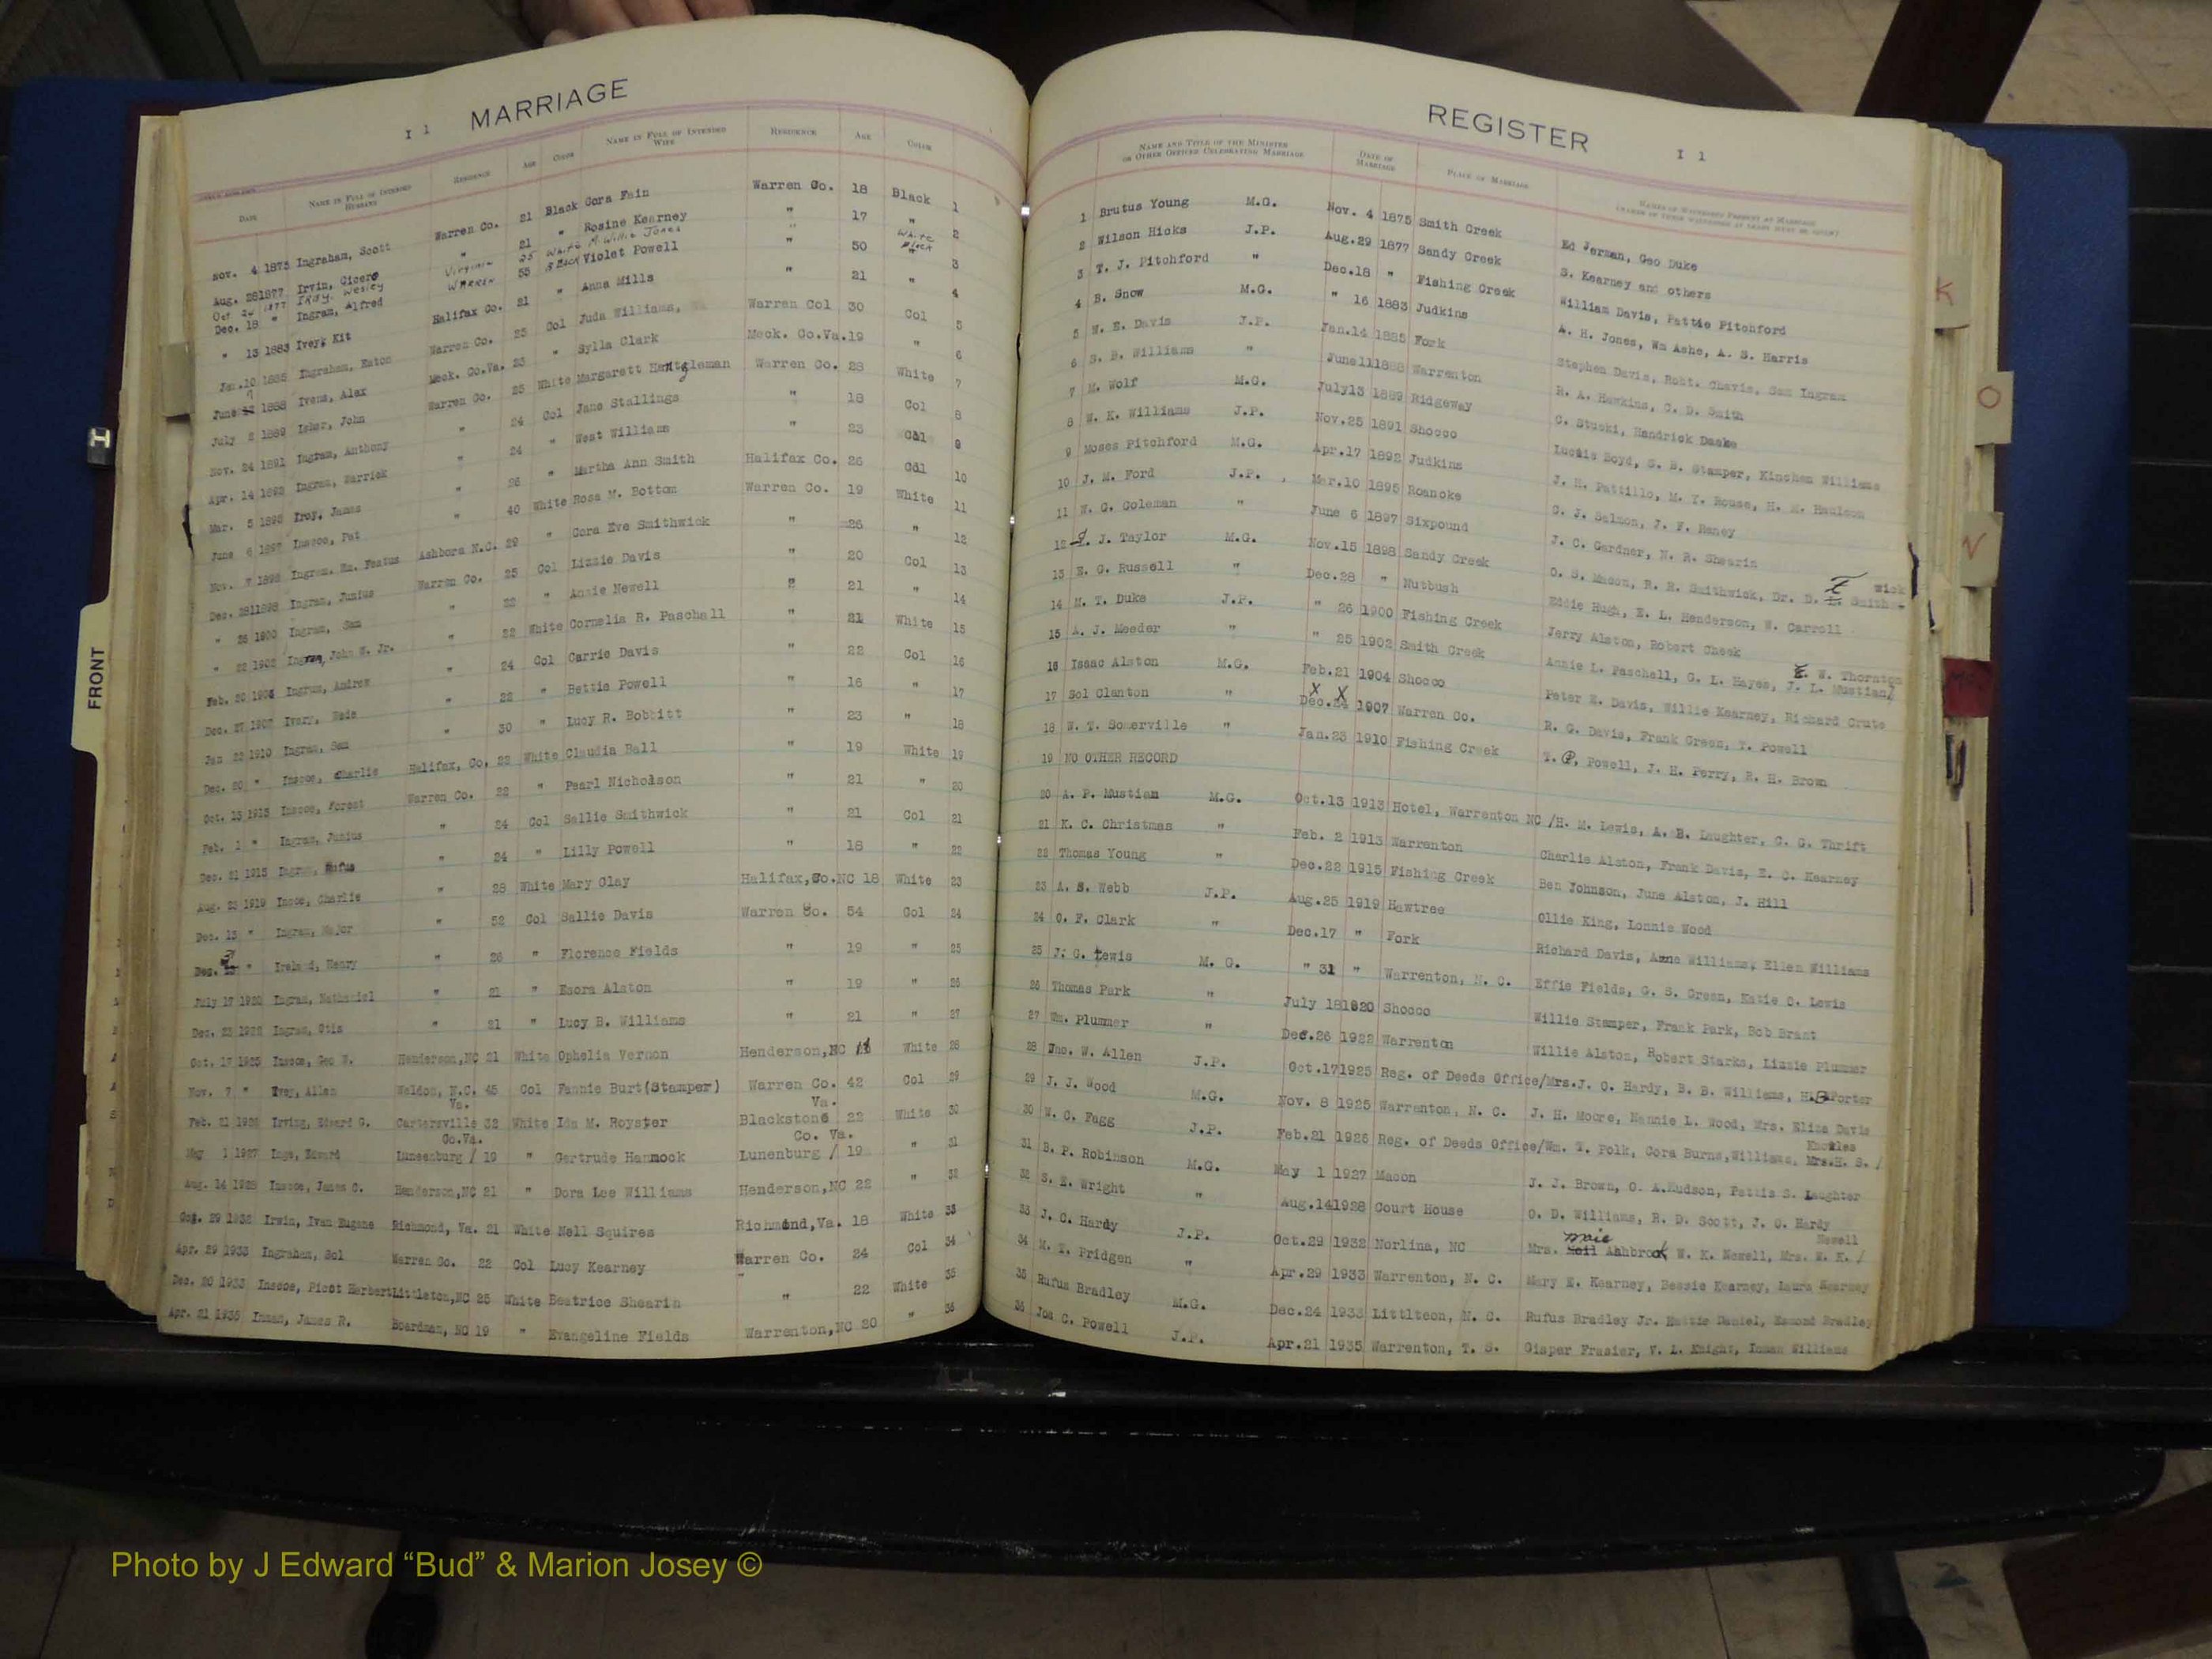 MARRIAGE
I 1
DATE NAME IN FULL OF INTENDED HUSBAND RESIDENCE AGE COLOR NAME IN FULL OF INTENDED WIFE RESIDENCE AGE COLOR
Nov. 4 1875 Ingraham, Scott Warren Co. 21 Black Cora Fain Warren Co. 18 Black 1
Aug. 281877 Irvin, Cicero " 21 " Rosine Kearney " 17 " 2
Oct 1877 Wesley Virginia 25 White M. Willie Jones " White
Dec. 18 " Ingram, Alfred WARREN 55 BLACK Violet Powell " 50 Black 3
" 13 1883 Ivey, Kit Halifax Co. 21 " Anna Mills " 21 " 4
Jan.10 1885 Ingraham, Eaton Warren Co. 25 Col Juda Williams, Warren Col 30 Col 5
June 1888 Ivens, Alex Meck. Co.Va. 23 " Sylla Clark Meck. Co.Va.19 " 6
July 2 1889 Isker, John Warren Co. 25 White Margarett Hantgleman Warren Co. 28 White 7
Nov. 24 1891 Ingram, Anthony " 24 Col Jane Stallings " 18 Col 8
Apr. 14 1892 Ingram, Warrick " 24 " West Williams " 23 Col 9
Mar. 5 1895 Iroy, James " 26 " Martha Ann Smith Halifax Co. 26 Col 10
June 6 1897 Inscoe, Pat " 40 White Rosa M. Bottom Warren Co. 19 White 11
Nov. 7 1898 Ingram. Rm. Festus Ashboro N.C. 29 " Cora Eve Smithwick " 26 " 12
Dec. 281898 Ingram, Junius Warren Co. 25 Col Lizzie Davis " 20 Col 13
" 26 1900 Ingram, Sam " 22 " Annie Newell " 21 " 14
" 22 1902 Ingram, John W. Jr. " 22 White Cornelia R. Paschall " 21 White 15
Feb. 20 1904 Ingram, Andrew " 24 Col Carrie Davis " 22 Col 16
Dec. 27 1907 Ivory, Wade " 22 " Bettie Powell " 16 " 17
Jan 22 1910 Ingram, Sam " 30 " Lucy R. Bobbitt " 23 " 18
Dec. 20 " Inscoe, Charlie Halifax, Co. 22 White Claudia Ball " 19 White 19
Oct. 13 1913 Inscoe, Forest Warren Co. 22 " Pearl Nicholson " 21 " 20
Feb. 1 " Ingram, Junius " 24 Col Sallie Smithwick " 21 Col 21
Dec. 21 1915 Ingram, Rufus " 24 " Lilly Powell " 18 " 22
Aug. 23 1919 Inscoe, Charlie " 28 White Mary Clay Halifax,Co.NC 18 White 23
Dec. 15 " Ingram, Major " 52 Col Sallie Davis Warren Co. 54 Col 24
Dec. " Ireland, Henry " 26 " Florence Fields " 19 " 25
July 17 1920 Ingram, Nathaniel " 21 " Enora Alston " 19 " 26
Dec. 23 1922 Ingram, Otis " 21 " Lucy B. Williams " 21 " 27
Oct. 17 1925 Inscoe, Geo W. Henderson,NC 21 White Ophelia Vernon Henderson,NC 18 White 28
Nov. 7 " Ivey, Allen Weldon, N.C. 45 Col Fannie Burt(Stamper) Warren Co. 42 Col 29
Va. Va.
Feb. 21 1926 Irving, Edward G. Cartersville 32 White Ida M. Royster Blackstone 22 White 30
Co.Va. Co. Va.
May 1 1927 Inge, Edward Luneenburg / 19 " Gertrude Hammock Lunenburg / 19 " 31
Aug. 14 1928 Inscoe, James C. Henderson,NC 21 " Dora Lee Williams Henderson,NC 22 " 32
Oct. 29 1932 Irwin, Ivan Eugene Richmond, Va. 21 White Nell Squires Richmond,Va. 18 White 33
Apr. 29 1933 Ingraham, Sol Warren Co. 22 Col Lucy Kearney Warren Co. 24 Col 34
Dec. 20 1933 Inscoe, Picot Herbert Littleton,NC 25 White Beatrice Shearin " 22 White 35
Apr. 21 1935 Inman, James R. Boardman, NC 19 " Evangeline Fields Warrenton,NC 20 " 36
REGISTER
I 1
NAME AND TITLE OF THE MINISTER OR OTHER OFFICER CELEBRATING MARRIAGE DATE OF MARRIAGE PLACE OF MARRIAGE
1 Brutus Young M.G. Nov. 4 1875 Smith Creek Ed Jerman, Geo Duke
2 Wilson Hicks J.P. Aug.29 1877 Sandy Creek S. Kearney and others
3 T. J. Pitchford " Dec.18 " Fishing Creek William Davis, Pattie Pitchford
4 B. Snow M.G. " 16 1883 Judkins A. H. Jones, Wm Ashe, A. S. Harris
5 W. E. Davis J.P. Jan.14 1885 Fork Stephen Davis, Robt. Chavis, Sam Ingram
6 S. B. Williams " June111888 Warrenton R. A. Hawkins, C. D. Smith
7 M. Wolf M.G. July13 1889 Ridgeway C. Stucki, Handrick Daeke
8 W. K. Williams J.P. Nov.25 1891 Shocco Lucris Boyd, S. B. Stamper, Kinchen Williams
9 Moses Pitchford M.G. Apr.17 1892 Judkins J. H. Pattillo, M. Y. Rouse, H. M. Haulcon
10 J. M. Ford J.P. Mar.10 1895 Roanoke C. J. Salmon, J. F. Raney
11 W. C. Coleman " June 6 1897 Sixpound J. C. Gardner, N. R. Shearin
12 J. Taylor M.G. Nov.15 1898 Sandy Creek O. S. Macon, R. R. Smithwick, Dr. D. Smith- wick
13 E. G. Russell " Dec.28 " Nutbush Eddie Hugh, E. L. Henderson, W. Carroll
14 M. T. Duke J.P. " 26 1900 Fishing Creek Jerry Alston, Robert Cheek
15 A. J. Meeder " " 25 1902 Smith Creek Annie L. Paschall, G. L. Hayes, J. L. Mustian/ E. W. Thornton
16 Isaac Alston M.G. Feb.21 1904 Shocco Peter E. Davis, Willie Kearney, Richard Crute
X X
17 Sol Clanton " Dec.24 1907 Warren Co. R. G. Davis, Frank Green, T. Powell
18 W. T. Somerville " Jan.23 1910 Fishing Creek T. P. Powell, J. H. Perry, R. H. Brown
19 NO OTHER RECORD
20 A. P. Mustian M.G. Oct.13 1913 Hotel, Warrenton NC /H. M. Lewis, A. B. Laughter, C. G. Thrift
21 K. C. Christmas " Feb. 2 1913 Warrenton Charlie Alston, Frank Davis, E. C. Kearney
22 Thomas Young " Dec.22 1915 Fishing Creek Ben Johnson, June Alston, J. Hill
23 A. S. Webb J.P. Aug.25 1919 Hawtree Ollie King, Lonnie Wood
24 O. F. Clark " Dec.17 " Fork Richard Davis, Anna Williams, Ellen Williams
25 J. G. Lewis M. G. " 31 " Warrenton, N. C. Effie Fields, G. S. Green, Katie C. Lewis
26 Thomas Park " July 181920 Shocco Willie Stamper, Frank Park, Bob Brant
27 Wm. Plummer " Dec.26 1922 Warrenton Willie Alston, Robert Starks, Lizzie Plummer
28 Jno. W. Allen J.P. Oct.171925 Reg. of Deeds Office/Mrs.J. C. Hardy, B. B. Williams, H.B.Porter
29 J. J. Wood M.G. Nov. 8 1925 Warrenton, N. C. J. H. Moore, Nannie L. Wood, Mrs. Eliza Davis
Knowles
30 W. C. Fagg J.P. Feb.21 1926 Reg. of Deeds Office/Wm. T. Polk, Cora Burns,Williams, Mrs.H. S. /
31 B. P. Robinson M.G. May 1 1927 Macon J. J. Brown, O. A.Hudson, Pattie S. Laughter
32 S. E. Wright " Aug.141928 Court House O. D. Williams, R. D. Scott, J. C. Hardy
Newell
33 J. C. Hardy J.P. Oct.29 1932 Norlina, NC Mrs. Ahhbrook W. K. Newell, Mrs. W. K. /
34 M. T. Pridgen " Apr.29 1933 Warrenton, N. C. Mary E. Kearney, Bessie Kearney, Laura Kearney
35 Rufus Bradley M.G. Dec.24 1933 Littlteon, N. C. Rufus Bradley Jr. Hattie Daniel, Esmond Bradley
36 Jos C. Powell J.P. Apr.21 1935 Warrenton, T. S. Gisper Frasier, V. L. Knight, Inman Williams
FRONT
I
K
O
N
Photo by J Edward “Bud” & Marion Josey ©